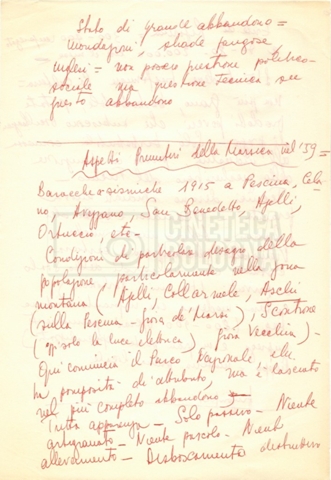 Stato di grande abbandono =
mondezzai, strade fangose,
= non povere questione politico-
sociale ma questione tecnica
questo abbandono
Aspetti Primitivi della Marsica nel '59 =
Baracche asismiche 1915 a Pescina, Cela-
no, Avezzano, San Benedetto, Ajelli,
Ortucchio, etc -
Condizioni di particolare disagio della
popolazione particolarmente nella zona
montana (Ajelli, Collarmele, Aschi
(sulla Pescina - Gioia de' Marsi), Sperone
(qui solo la luce elettrica), Gioia Vecchia) -
Qui comincia il Parco Nazionale che
ha prerogative di , ma è lasciato
nel più completo abbandono
Tutta apparenza - Solo passivo - Niente
artigianato - Niente pascolo - Niente
allevamento - Disboscamento distruttivo
CINETECA
BOLOGNA